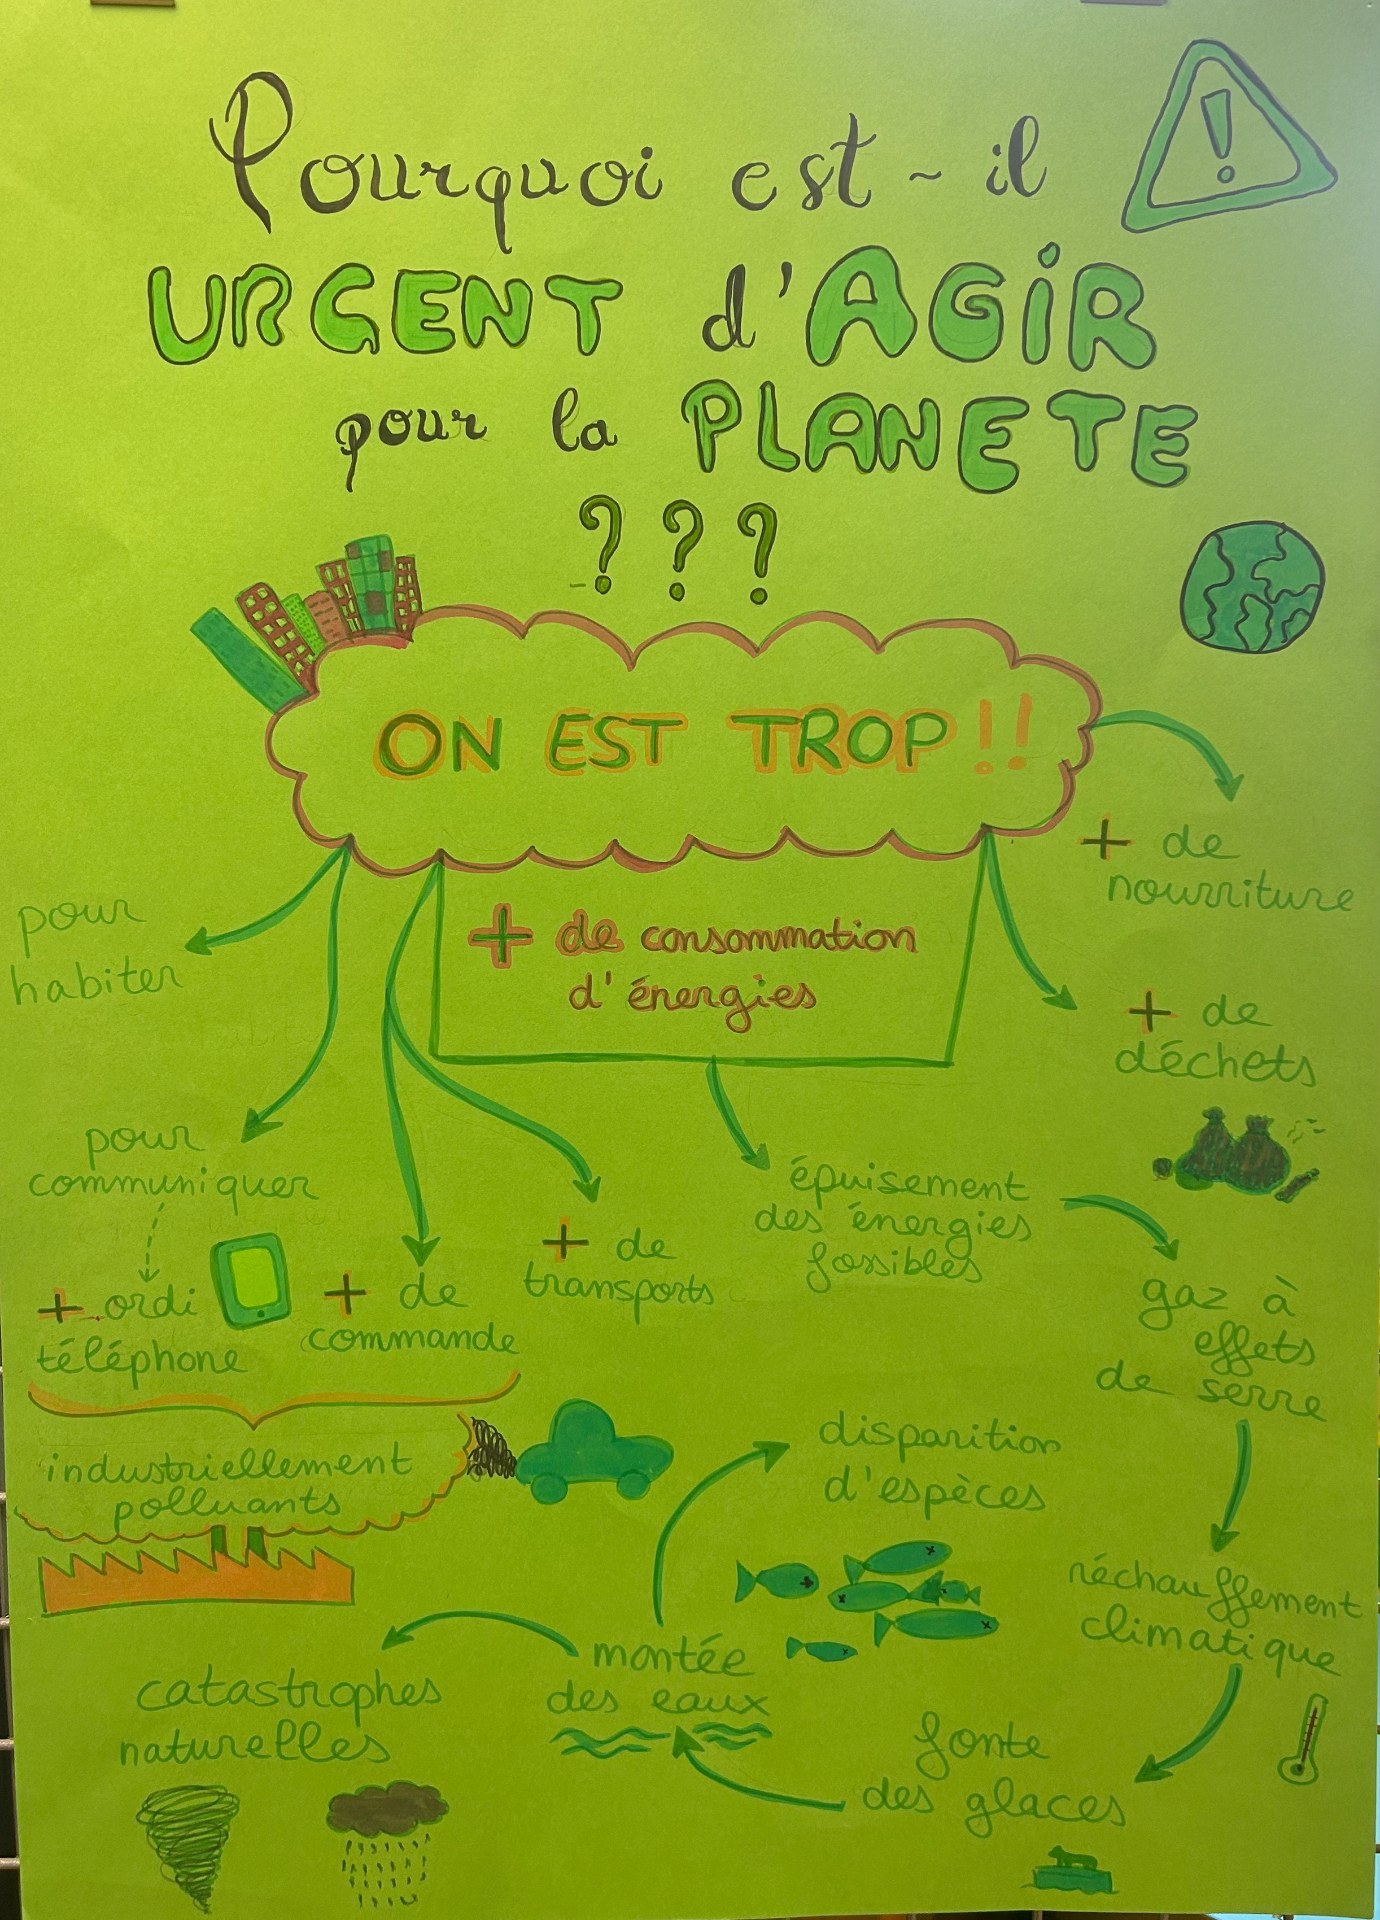 Pourquoi est-il
URGENT d'AGIR
pour la PLANETE
???
ON EST TROP!!
+ de
nourriture
+ de consommation
d'énergies
pour
habiter
+ de
déchets
pour
communiquer
+ ordi
téléphone
+ de
commande
+ de
transports
épuisement
des énergies
fossibles
gaz à
effets
de serre
industriellement
polluants
disparition
d'espèces
réchauffement
climatique
montée
des eaux
catastrophes
naturelles
fonte
des glaces